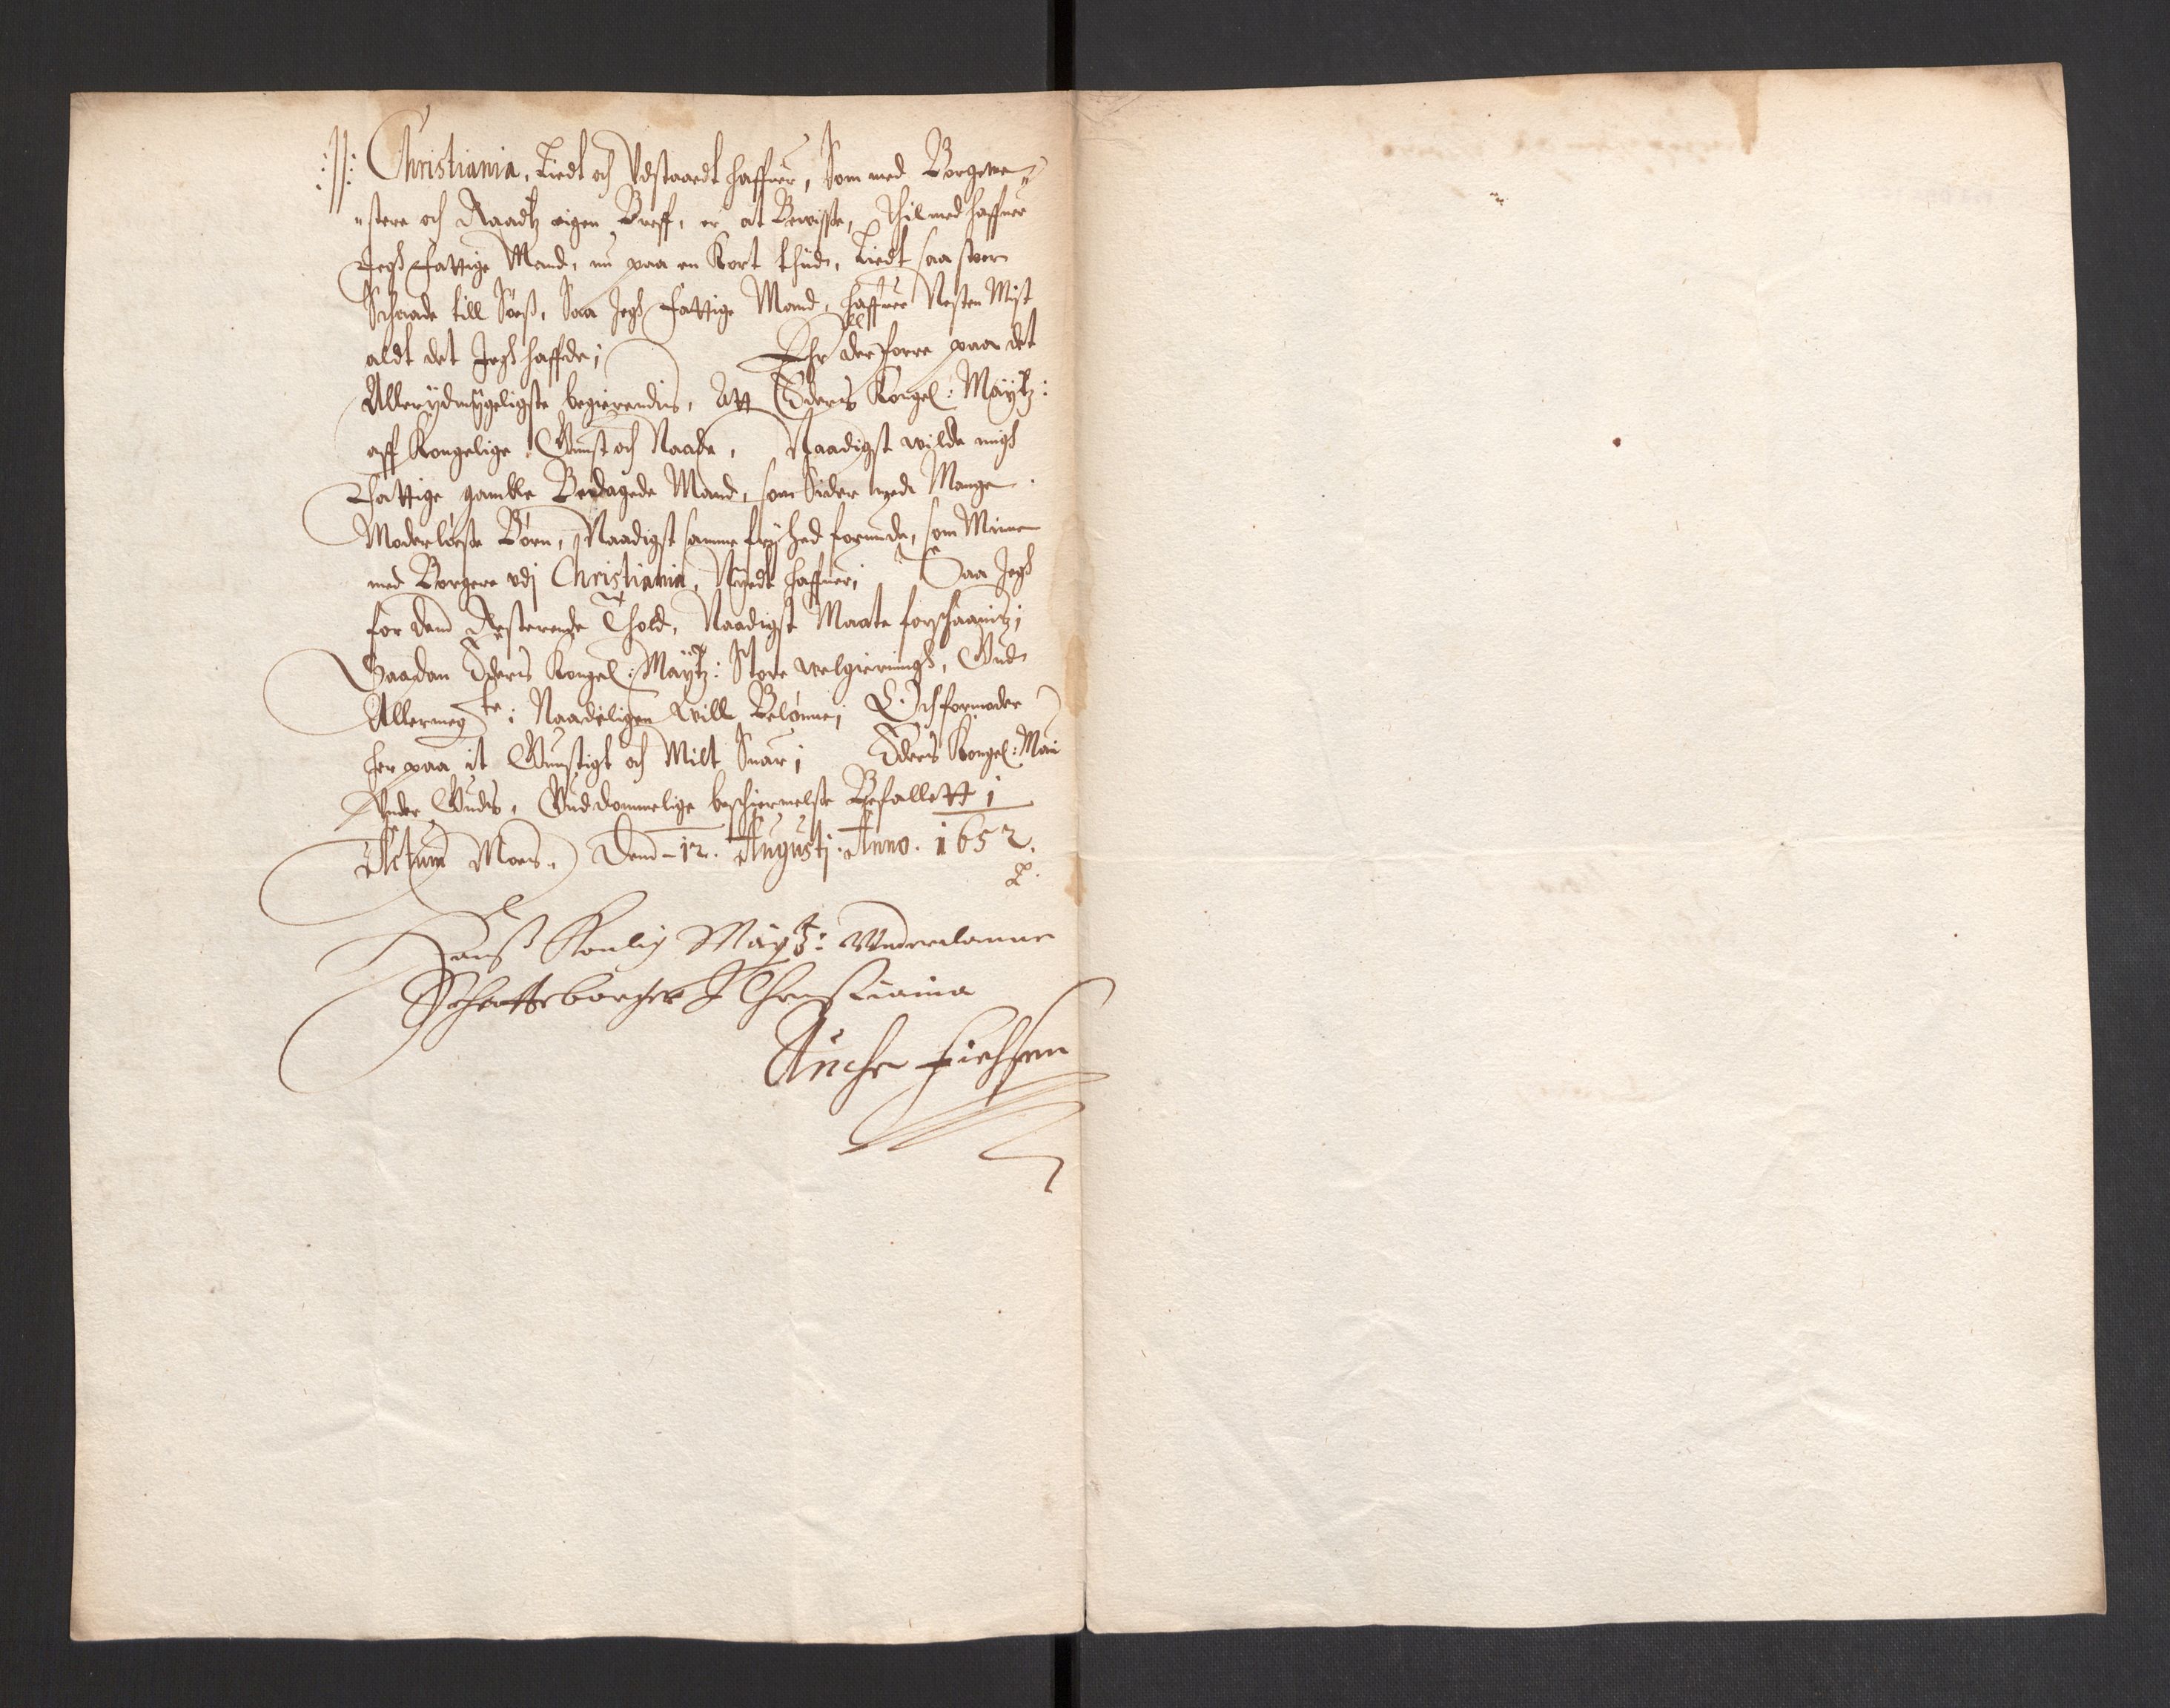 :||: Christiania, Liedt och Vdstaaedt haffuer, Som med Borgeme=
"stere och Raadtz eigen Breff, er at Bewisse, Thilmed haffuer
Jegh Fattige Mand, nu paa en Kort thiid, Liedt saa stor
Schaade till Søeß, Saa Jegh Fattige Mand, haffuer Nesten Mist
aldt det Jegh haffde; Ehr derforre paa det
Allerydmygeligste begierendis, Att Eders Kongel: Maytz:
aff Kongelige Gunst och Naade, Naadigst wilde migh
Fattige gamble Bedagede Mand, som Sider med Mange
Moderløeße Børn, Naadigst samme fryhed forunde, som Mine
med Borgere vdj Christiania, Nyedt haffuer; Saa Jegh
for dend Resterende Thold, Naadigst Maate forschaanis;
Saadan Eders Kongel: Maytz: Store welgierningh, Gud
Allermegte: Naadeligen will Belønne; Och formoder
her paa it Gunstigt och Milt Suar; Eders Kongel: May
Vnder Guds, Guddommelige beschiermelße Befallett;
Actum Moes. Dend 12. Augustj. Anno. 1652.
Hanß Konlig Maytz: Vnderdanne
Schatteborger I Christiania